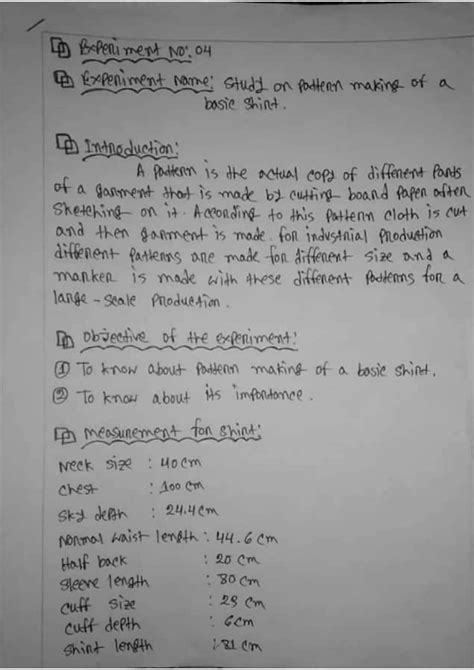 Experiment No: 04
Experiment Name: Study on Pattern making of a
basic Shirt.
Introduction:
A Pattern is the actual copy of different Parts
of a garment that is made by cutting board Paper after
Sketching on it. According to this Pattern cloth is cut
and then garment is made. for industrial Production
different Patterns are made for different size and a
marker is made with these different Patterns for a
large-scale Production.
Objective of the experiment:
① To know about Pattern making of a basic shirt.
② To know about its importance.
Measurement for Shirt:
Neck size : 40 cm
Chest : 100 cm
Sky depth : 24.4 cm
Normal waist length : 44.6 cm
Half back : 20 cm
Sleeve length : 80 cm
Cuff size : cm
Cuff depth : 6cm
Shirt length : 81 cm